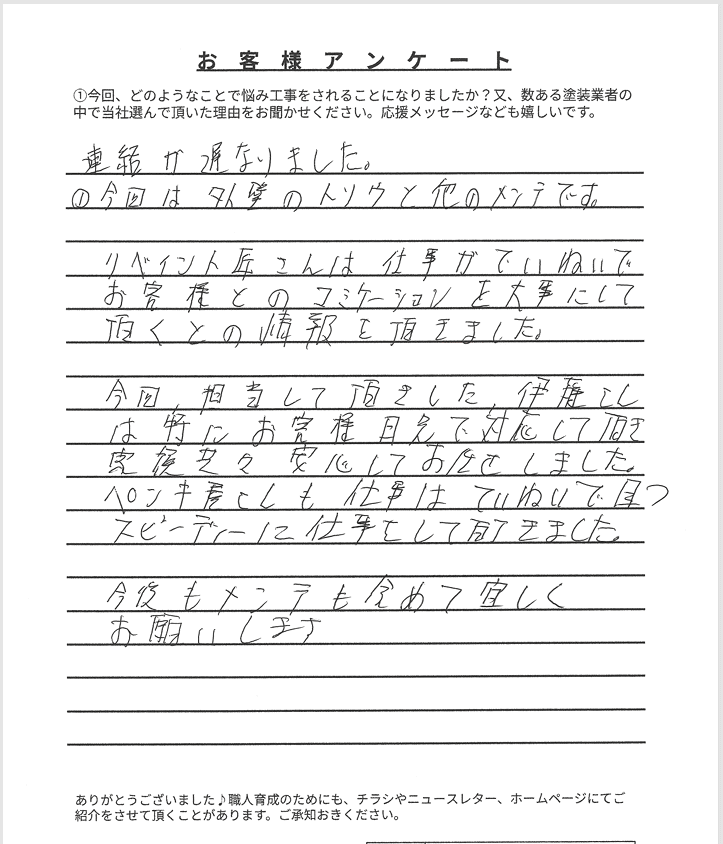 お客様アンケート
①今回、どのようなことで悩み工事をされることになりましたか？又、数ある塗装業者の
中で当社選んで頂いた理由をお聞かせください。応援メッセージなども嬉しいです。
連絡が遅なりました。
①今回は外壁のトソウと他のメンテです。
リペイント匠さんは仕事がでいねいで
お客様とのコミケーションを大事にして
頂くとの情報を頂きました。
今回、担当して頂きした、伊藤さん
は特にお客様目えで対応して頂き
安心してお任せしました。
ペンキ屋さんも仕事はていねいで且つ
スピーディーに仕事をして頂きました。
今後もメンテも含めて宜しく
お願いします
ありがとうございました♪職人育成のためにも、チラシやニュースレター、ホームページにてご
紹介をさせて頂くことがあります。ご承知おきください。